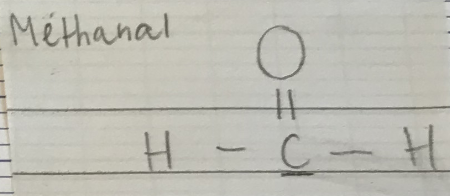 Méthanal
O
||
H - C - H